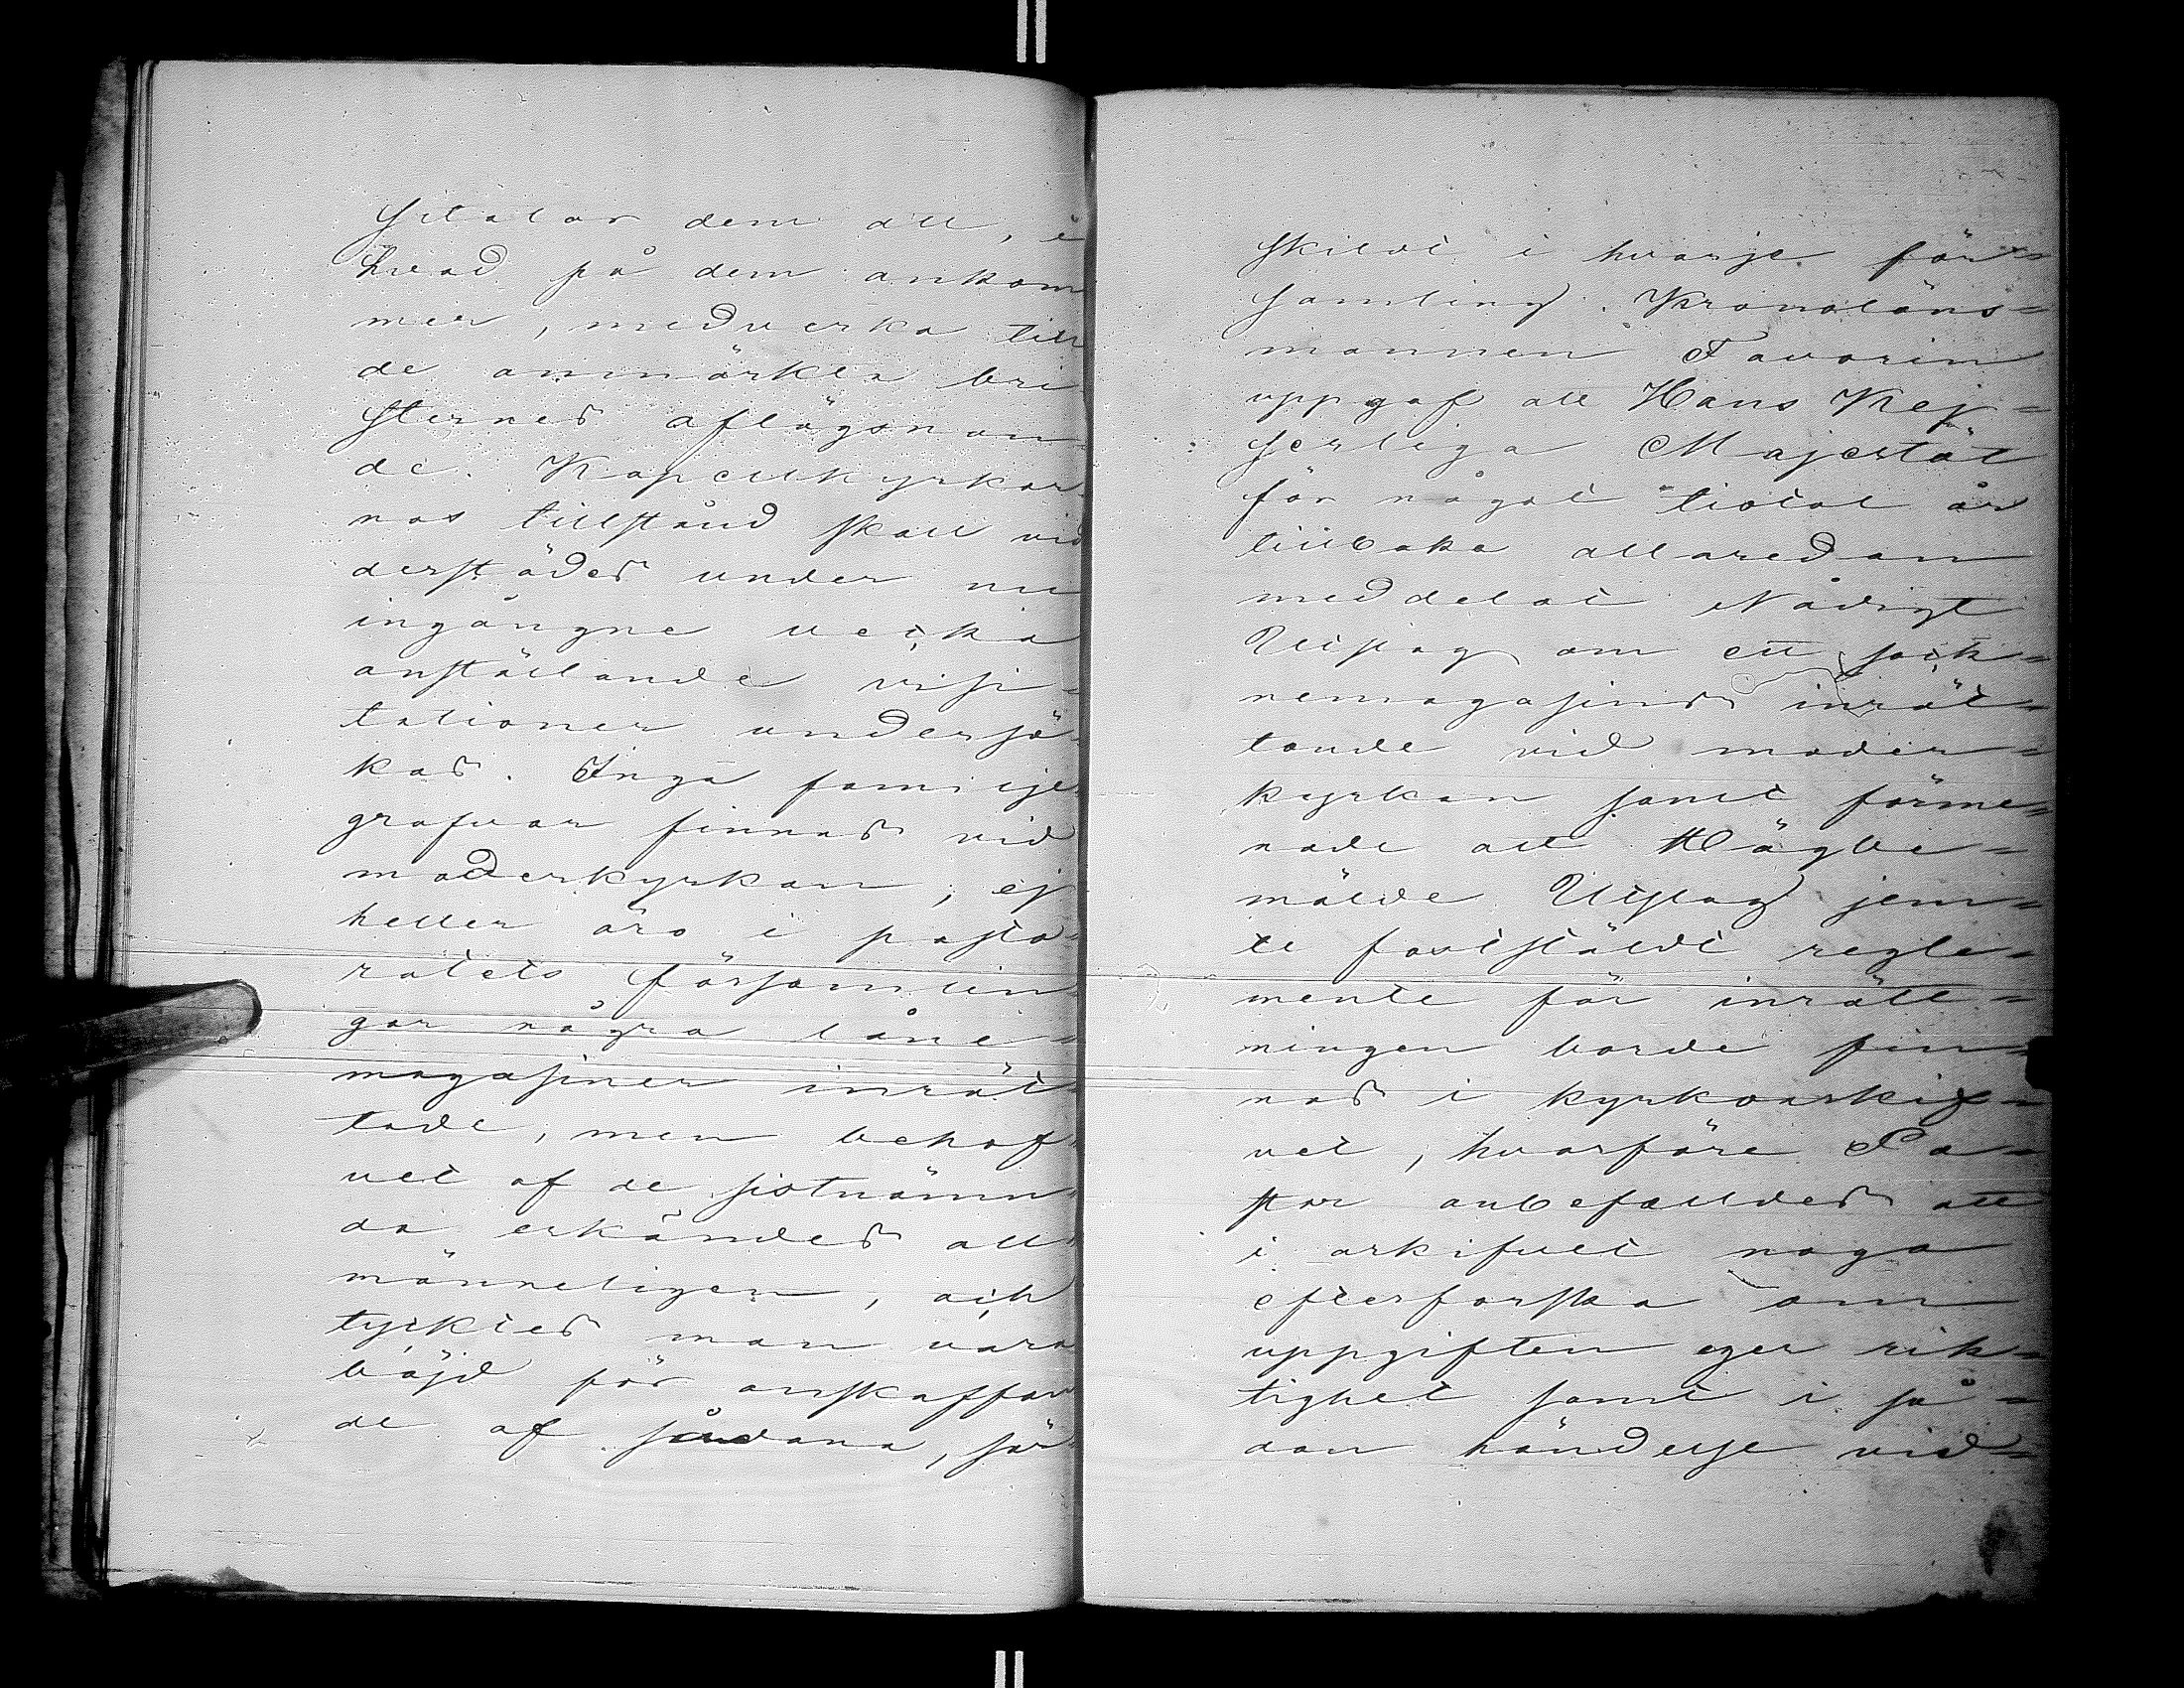 sitatar dem att, i
hvad på dem ankom
mer, medverka till
de anmärkta bri
sternes aflägsnan
de. Kapellkyrkor
nas tillstånd skall vid
derstädes under nu
ingångne vecka
anställande visi-
tationer undersö-
kas. Inga familje
grafvar finnas vid
moderkyrkan, ej
heller äro i pasto-
ratets församlin-
gar några låne-
magasiner inrät-
tade, men behof-
vet af de sistnämn-
da erkändes all-
männeligen, och
tycktes man vara
böjd för anskaffan
de af sådana, sär-
skildt i hvarje för-
samling. Kronoläns-
mannen Favorin
uppgaf att Hans Kej-
serliga Majestät
för något tiotal år
tillbaka allaredan
meddelat Nådigt
Utslag om ett sock-
nemagasins inrät-
tande vid moder-
kyrkan samt förme-
nade att Högbe-
mälde Utslag jem-
te fastställdt regle-
mente för inrätt-
ningen borde fin-
nas i kyrkoarkif-
vet, hvarföre Pa-
stor anbefalldes att
i arkifvet noga
efterforska om
uppgiften eger rik-
tighet samt i så-
dan händelse vid-